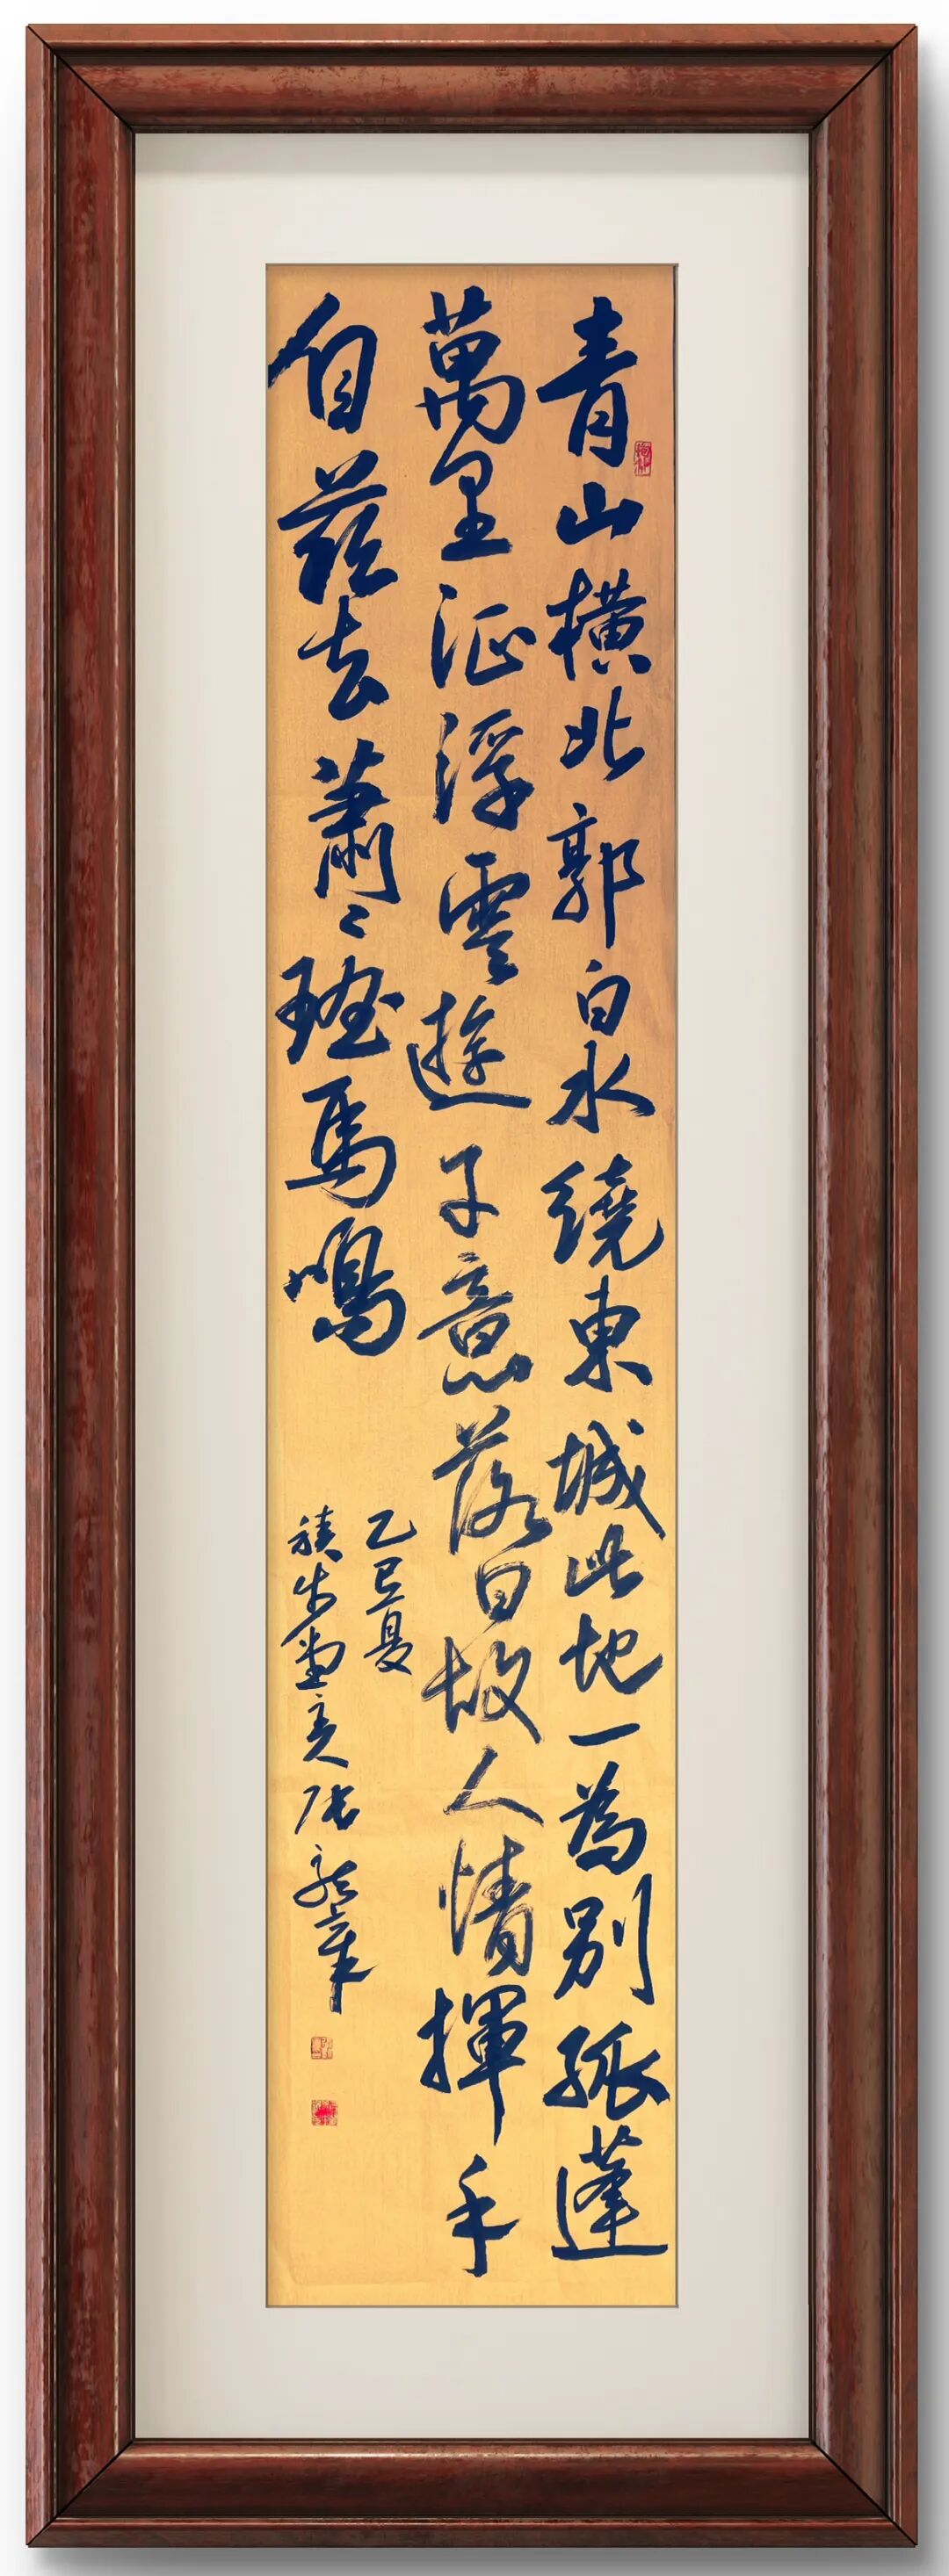 青山橫北郭白水繞東城此地一為別孤蓬
萬里征浮雲遊子意落日故人情揮手
自茲去蕭々班馬鳴
乙巳夏
積步堂張龍章